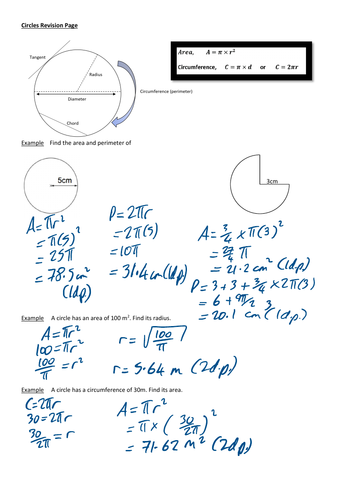 Circles Revision Page
Area, A = π × r²
Circumference, C = π × d or C = 2πr
Tangent
Radius
Diameter
Circumference (perimeter)
Chord
Example Find the area and perimeter of
5cm
3cm
A = πr²
= π(5)²
= 25π
= 78.5 cm²
(1dp)
P = 2πr
= 2π(5)
= 10π
= 31.4 cm (1dp)
A = 3/4 × π(3)²
= 27/4 π
= 21.2 cm² (1dp)
P = 3 + 3 + 3/4 × 2π(3)
= 6 + 9π/2
= 20.1 cm (1dp)
Example A circle has an area of 100 m². Find its radius.
A = πr²
100 = πr²
100/π = r²
r = √100/π
r = 5.64 m (2dp)
Example A circle has a circumference of 30m. Find its area.
C = 2πr
30 = 2πr
30/2π = r
A = πr²
= π × (30/2π)²
= 71.62 m² (2dp)